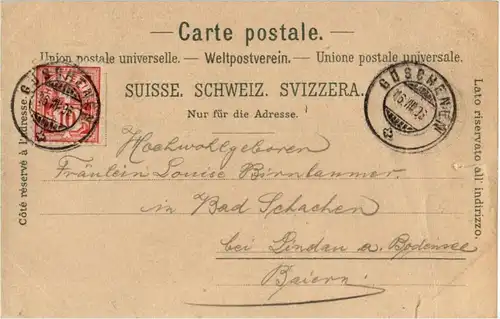 — Carte postale. —
Union postale universelle. — Weltpostverein. — Unione postale universale.
SUISSE. SCHWEIZ. SVIZZERA.
Nur für die Adresse.
Côté réservé à l'adresse.
Lato riservato all' indirizzo.
GÖSCHENEN
10
GÖSCHENEN
Hochwohlgeboren
Fräulein Louise Birnhammer
in Bad Schachen
bei Lindau a. Bodensee
Baiern